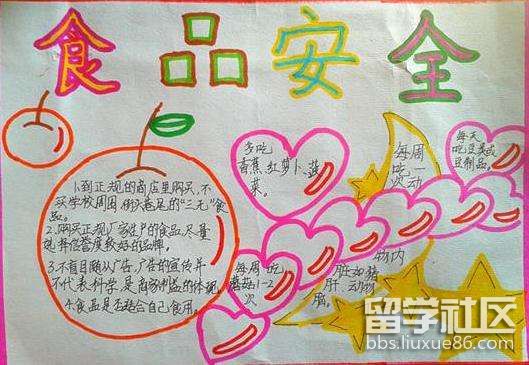 食品安全
1.到正规的商店里购买,不
买学校周围、街头巷尾的"三无"食
品。
2.购买正规厂家生产的食品,尽量
选择信誉度较好的品牌。
3.不盲目随从广告,广告的宣传并
不代表科学,是商家利益的体现。
4.食品是否适合自己食用。
多吃
香蕉、红萝卜、蔬
菜。
每周
吃一
次动
物内
脏如猪
肝、动物
脑。
每天
吃豆类或
豆制品。
每周吃
蘑菇1-2
次
留学社区
bbs.liuxue86.com